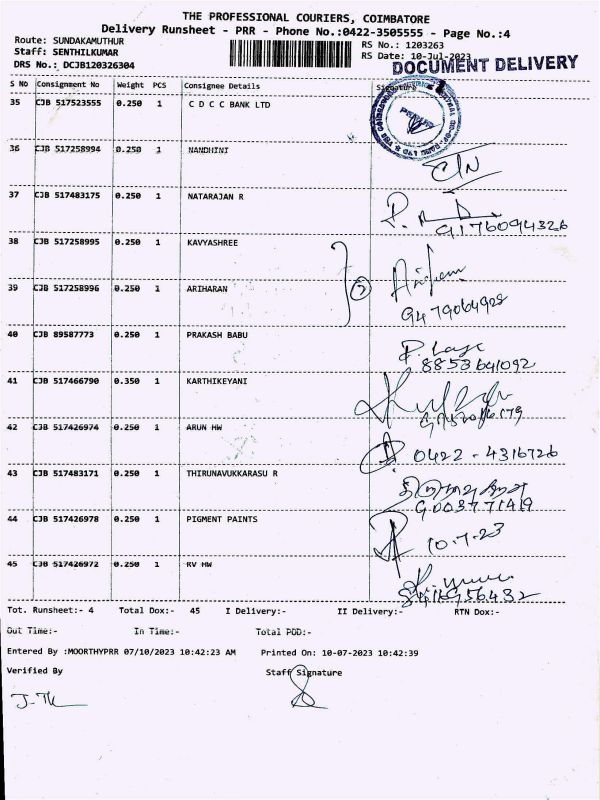 THE PROFESSIONAL COURIERS, COIMBATORE
Delivery Runsheet - PRR - Phone No.:0422-3505555 - Page No.:4
Route: SUNDAKAMUTHUR
RS No.: 1203263
Staff: SENTHILKUMAR
RS Date: 10-Jul-2023
DRS No.: DCJB120326304
DOCUMENT DELIVERY
S NO Consignment No Weight PCS Consignee Details Signature
35 CJB 517523555 0.250 1 C D C C BANK LTD
36 CJB 517258994 0.250 1 NANDHINI
37 CJB 517483175 0.250 1 NATARAJAN R
9176094326
38 CJB 517258995 0.250 1 KAVYASHREE
39 CJB 517258996 0.250 1 ARIHARAN
9479064928
40 CJB 89587773 0.250 1 PRAKASH BABU
8853641092
41 CJB 517466790 0.350 1 KARTHIKEYANI
42 CJB 517426974 0.250 1 ARUN HW
0422 - 4316726
43 CJB 517483171 0.250 1 THIRUNAVUKKARASU R
44 CJB 517426978 0.250 1 PIGMENT PAINTS
10.7.23
45 CJB 517426972 0.250 1 RV HW
Tot. Runsheet:- 4 Total Dox:- 45 I Delivery:- II Delivery:- RTN Dox:-
Out Time:- In Time:- Total POD:-
Entered By :MOORTHYPRR 07/10/2023 10:42:23 AM Printed On: 10-07-2023 10:42:39
Verified By Staff Signature